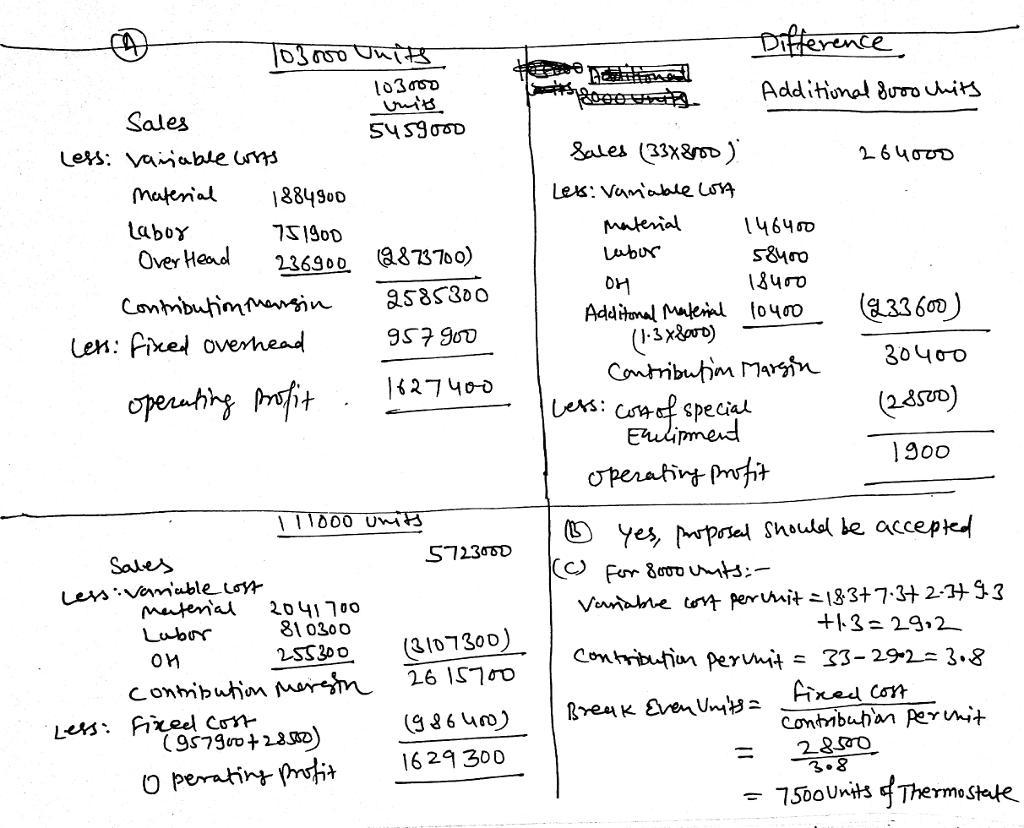 (A)
103000 Units
103000
Units
Sales 5459000
Less: Variable costs
Material 1884900
Labor 751900
OverHead 236900 (2873700)
Contribution Margin 2585300
Less: Fixed overhead 957900
Operating Profit 1627400
Difference
Additional
8000 units
Additional 8000 Units
Sales (33x8000) 264000
Less: Variable Cost
Material 146400
Labor 58400
OH 18400
Additional Material 10400 (233600)
(1.3x8000)
Contribution Margin 30400
Less: Cost of special (28500)
Equipment
Operating Profit 1900
111000 Units
Sales 5723000
Less: Variable Cost
Material 2041700
Labor 810300
OH 255300 (3107300)
Contribution Margin 2615700
Less: Fixed Cost (986400)
(957900+28500)
Operating Profit 1629300
(B) Yes, proposal should be accepted
(C) For 8000 Units:-
Variable cost per unit = 18.3+7.3+2.3+9.3
+1.3 = 29.2
Contribution per unit = 33-29.2 = 3.8
Break Even Units = Fixed Cost
Contribution per unit
= 28500
3.8
= 7500 Units of Thermostate